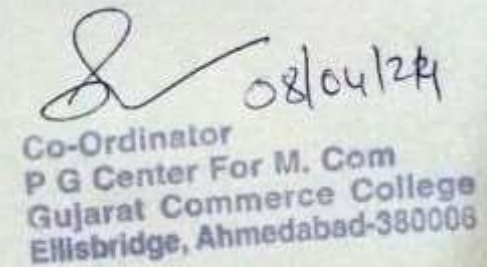 08/04/24
Co-Ordinator
P G Center For M. Com
Gujarat Commerce College
Ellisbridge, Ahmedabad-380006